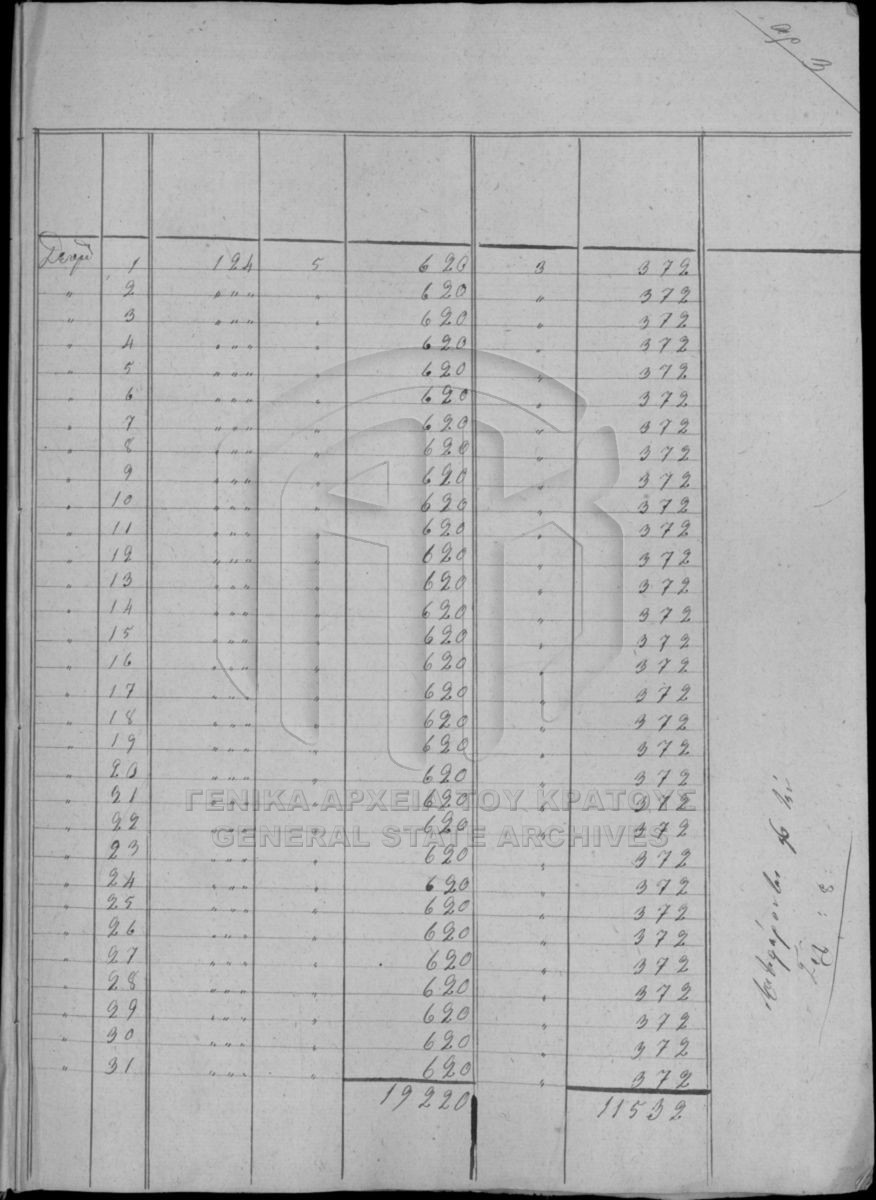 αρ 3
1 124 5 620 3 372
" 2 " " " " 620 " 372
" 3 " " " " 620 " 372
" 4 " " " " 620 " 372
" 5 " " " " 620 " 372
" 6 " " " " 620 " 372
" 7 " " " " 620 " 372
" 8 " " " " 620 " 372
" 9 " " " " 620 " 372
" 10 " " " " 620 " 372
" 11 " " " " 620 " 372
" 12 " " " " 620 " 372
" 13 " " " " 620 " 372
" 14 " " " " 620 " 372
" 15 " " " " 620 " 372
" 16 " " " " 620 " 372
" 17 " " " " 620 " 372
" 18 " " " " 620 " 372
" 19 " " " " 620 " 372
" 20 " " " " 620 " 372
" 21 " " " " 620 " 372
ΓΕΝΙΚΑ ΑΡΧΕΙΑ ΤΟΥ ΚΡΑΤΟΥΣ
" 22 " " " " 620 " 372
GENERAL STATE ARCHIVES
" 23 " " " " 620 " 372
" 24 " " " " 620 " 372
" 25 " " " " 620 " 372
" 26 " " " " 620 " 372
" 27 " " " " 620 " 372
" 28 " " " " 620 " 372
" 29 " " " " 620 " 372
" 30 " " " " 620 " 372
" 31 " " " " 620 " 372
19220 11532